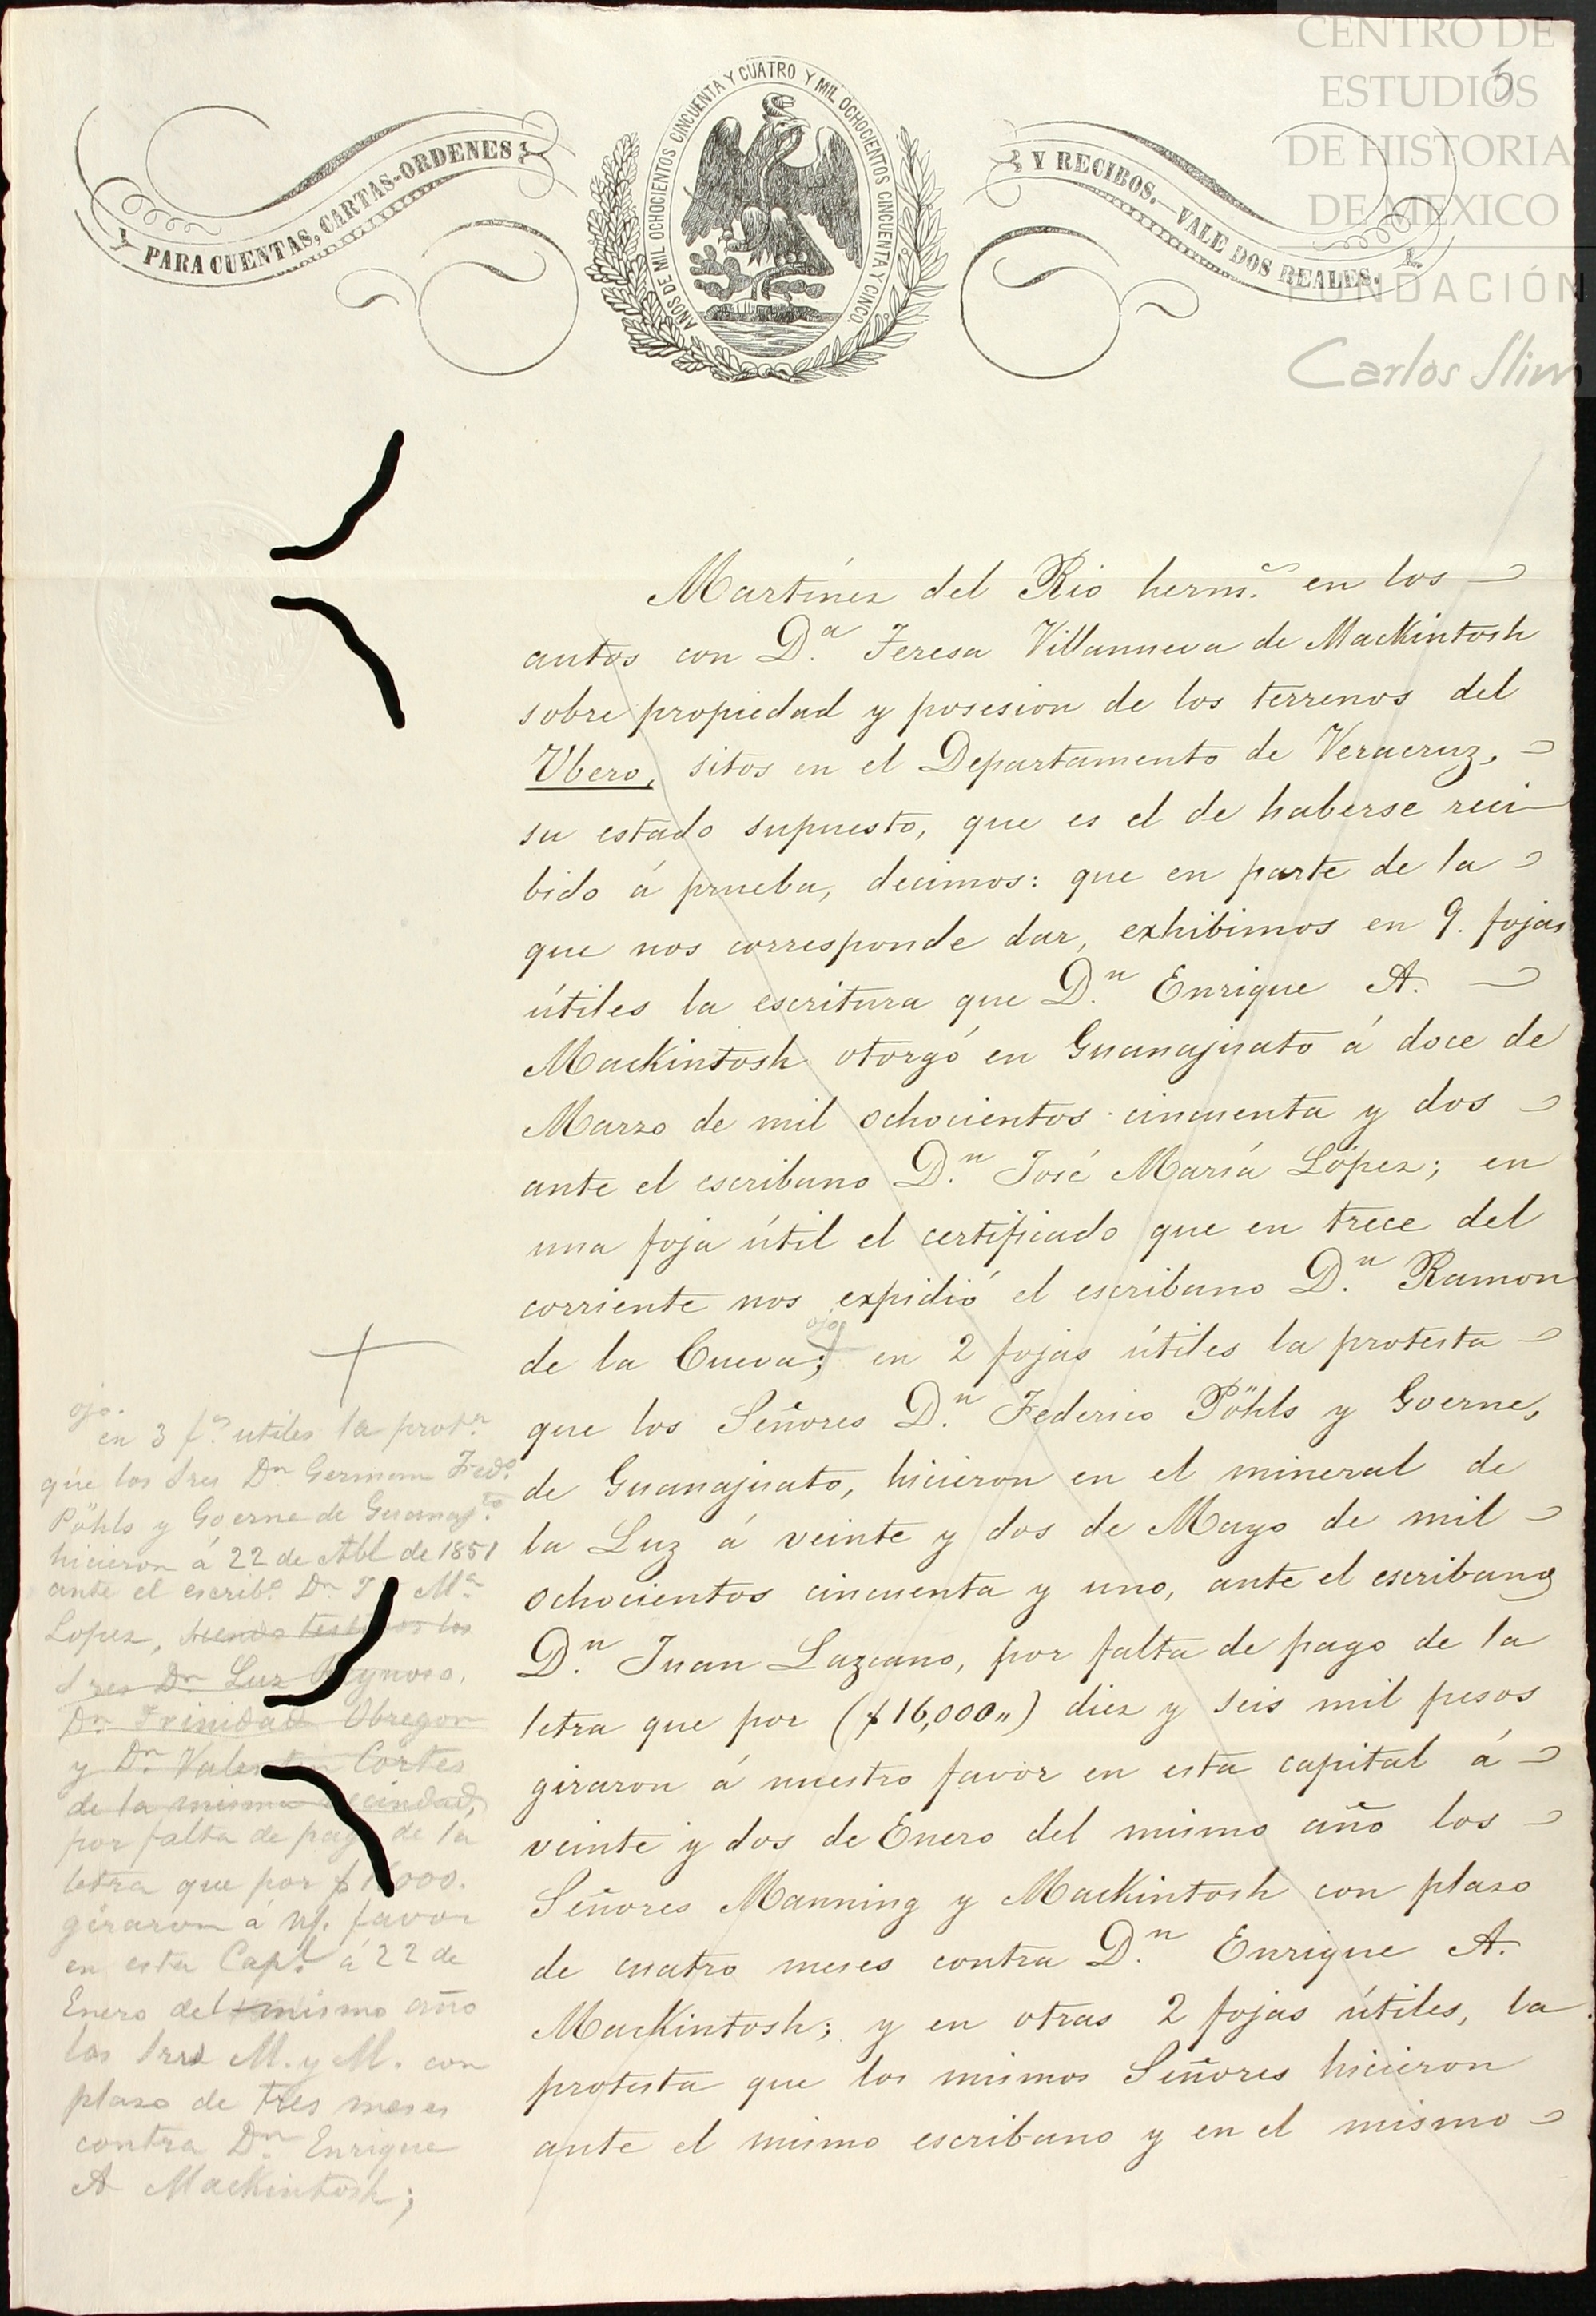 CENTRO DE
ESTUDIOS
DE HISTORIA
DE MEXICO
FUNDACIÓN
Carlos Slim
5
PARA CUENTAS, CARTAS-ORDENES
AÑOS DE MIL OCHOCIENTOS CINCUENTA Y CUATRO Y MIL OCHOCIENTOS CINCUENTA Y CINCO.
Y RECIBOS.—VALE DOS REALES.
Martínez del Rio herm.s en los
autos con D.a Teresa Villanueva de Mackintosh
sobre propiedad y posesion de los terrenos del
Ubero, sitos en el Departamento de Veracruz,
su estado supuesto, que es el de haberse reci-
bido á prueba, decimos: que en parte de la
que nos corresponde dar, exhibimos en 9. fojas
útiles la escritura que D.n Enrique A.
Mackintosh otorgó en Guanajuato á doce de
Marzo de mil ochocientos cincuenta y dos
ante el escribano D.n José María López; en
una foja útil el certificado que en trece del
corriente nos expidió el escribano D.n Ramon
ojo
de la Cueva; en 2 fojas útiles la protesta
que los Señores D.n Federico Pöhls y Goerne,
de Guanajuato, hicieron en el mineral de
la Luz á veinte y dos de Mayo de mil
ochocientos cincuenta y uno, ante el escribano
D.n Juan Lazcano, por falta de pago de la
letra que por ($16,000,,) diez y seis mil pesos
giraron á nuestro favor en esta capital á
veinte y dos de Enero del mismo año los
Señores Manning y Mackintosh con plazo
de cuatro meses contra D.n Enrique A.
Mackintosh; y en otras 2 fojas útiles, la
protesta que los mismos Señores hicieron
ante el mismo escribano y en el mismo
ojo.
en 3 f.s utiles la prot.a
que los Sres D.n German Fed.o
Pöhls y Goerne de Guanaj.to
hicieron á 22 de Abl de 1851
ante el escrib.o D.n J. M.a
Lopez, siendo testigos los
Sres D.n Luz Reynoso,
D.n Trinidad Obregon
y D.n Valentin Cortes
de la misma vecindad,
por falta de pago de la
letra que por $ 000.
giraron á n/. favor
en esta Cap.l á 22 de
Enero del mismo año
los Sres M. y M. con
plazo de tres meses
contra D.n Enrique
A Mackintosh;